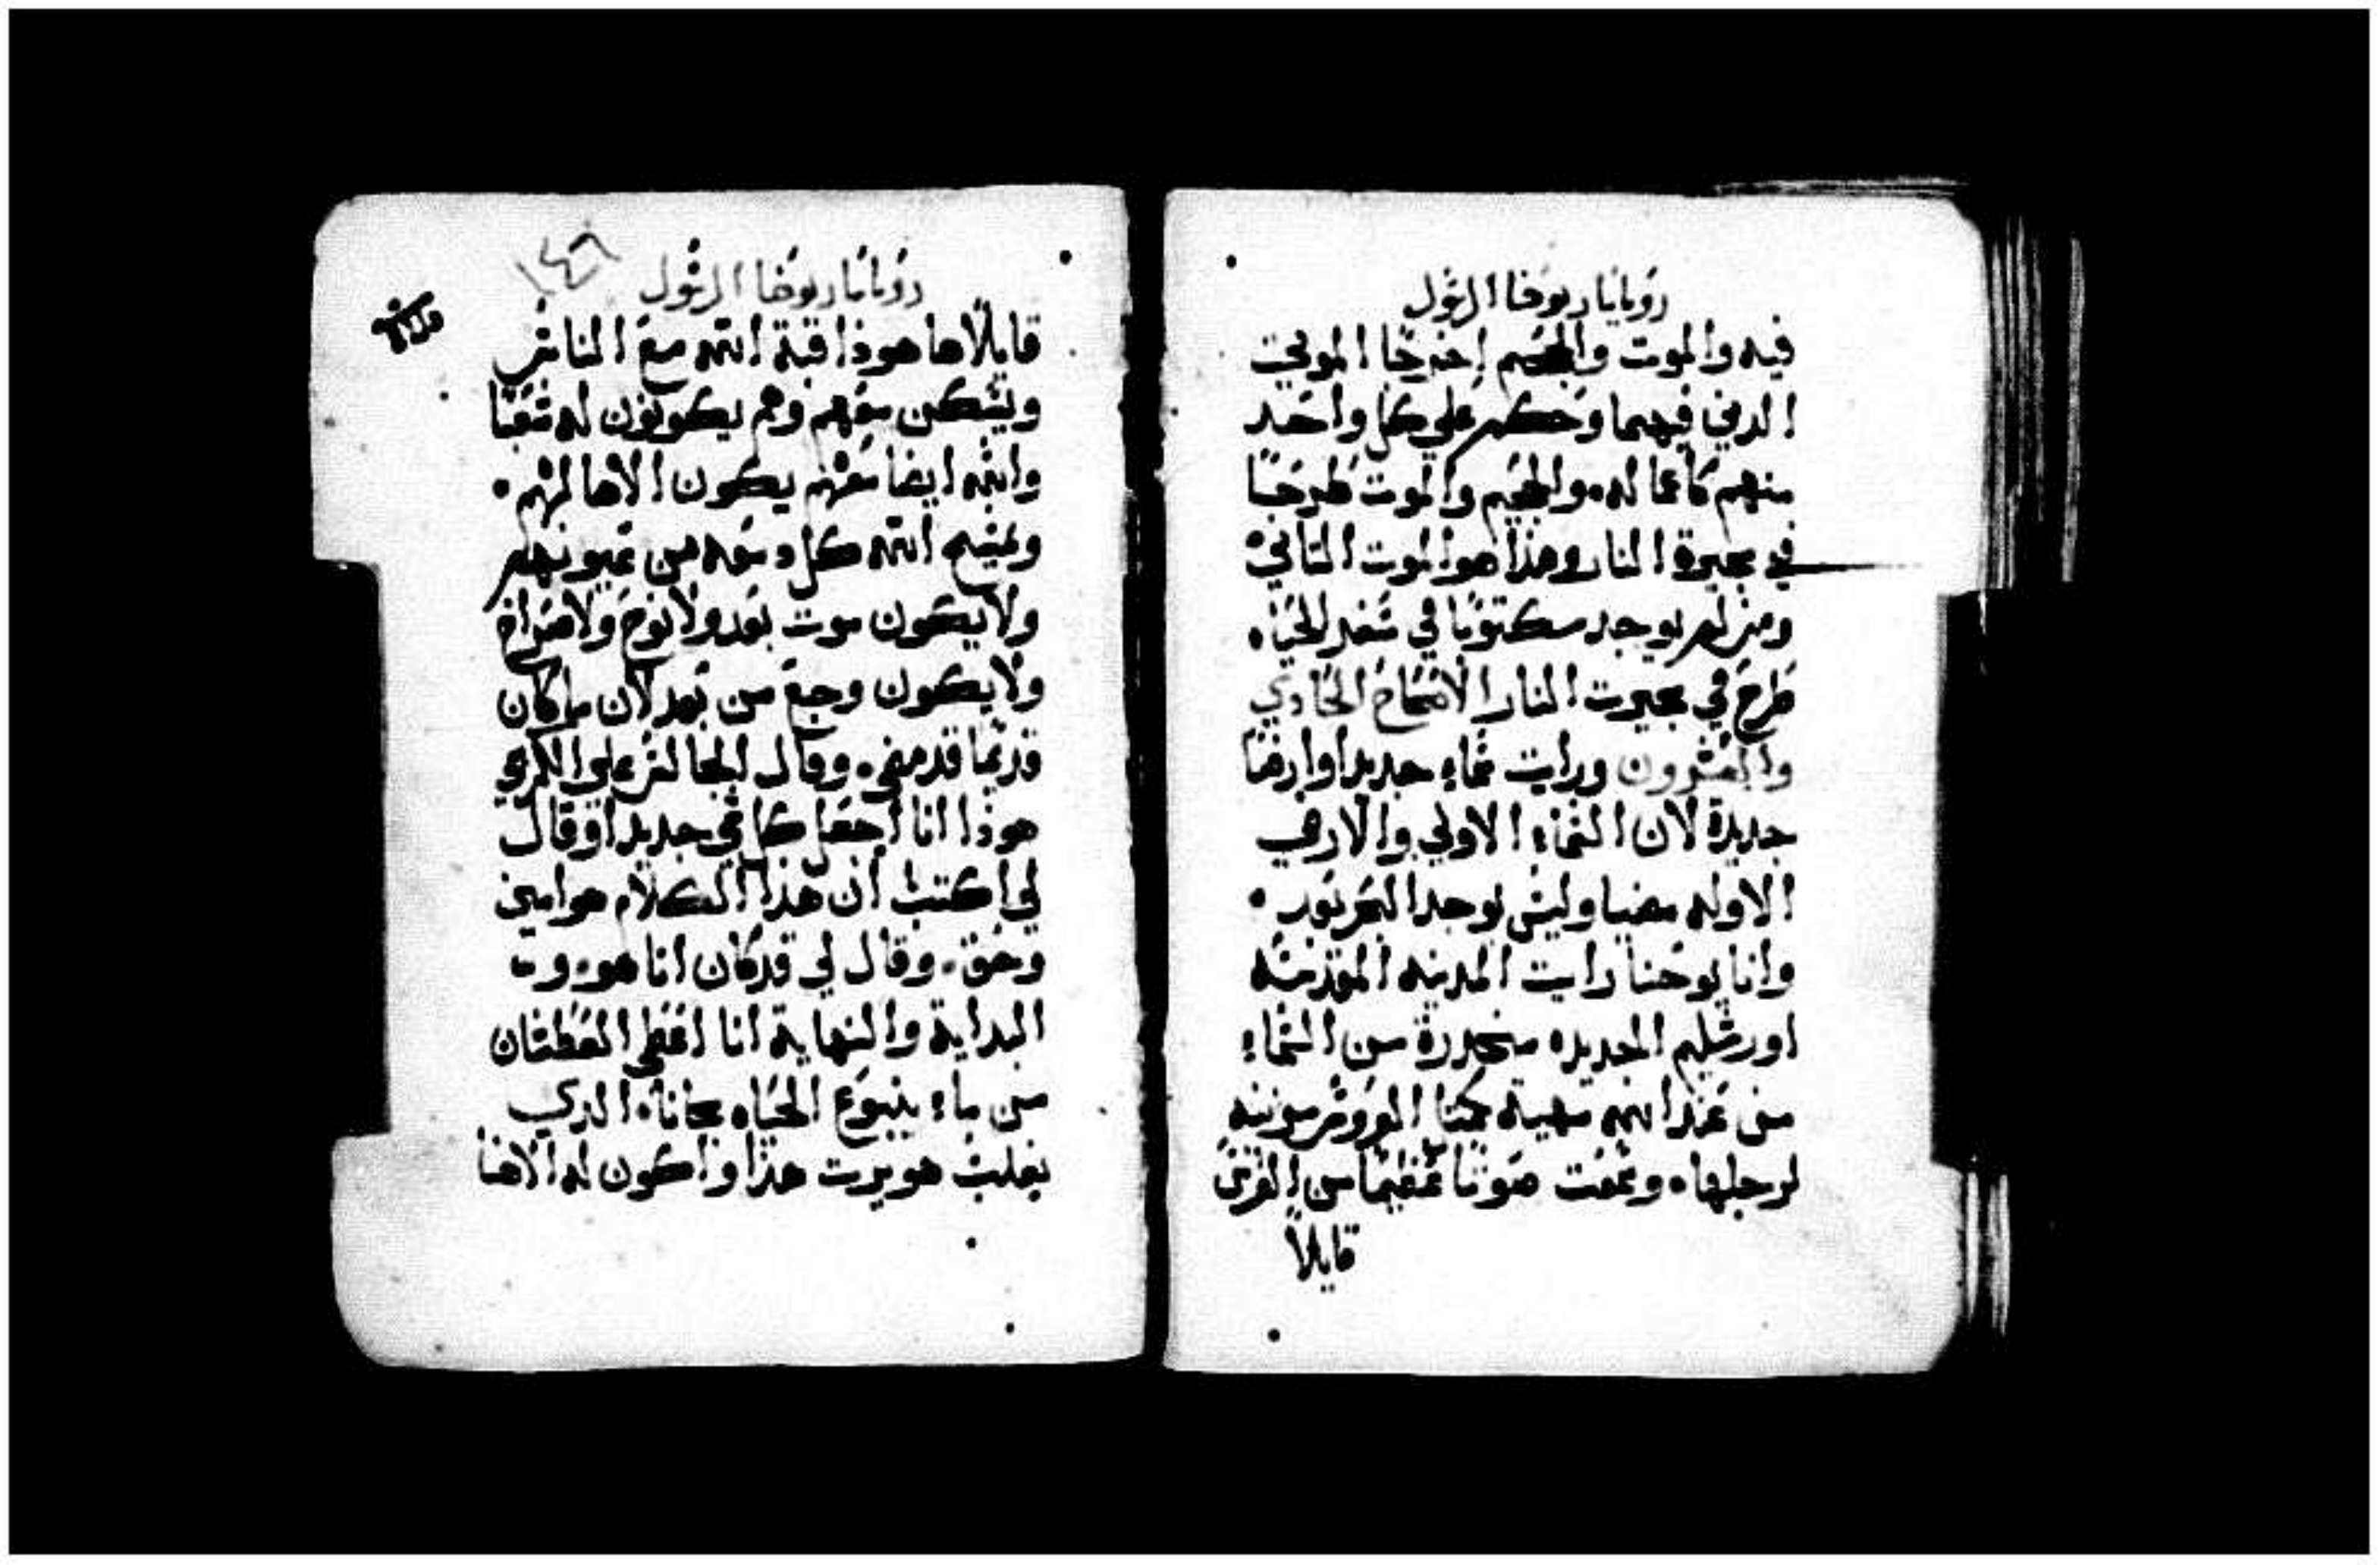 رويا مار يوحنا الرسول
فيه والموت والجحيم اخرجا الموتي
الدين فيهما وحكم علي كل واحد
منهم كاعماله والجحيم والموت طرحا
في بحيرة النار وهذا هو الموت التاني
ومن لم يوجد مكتوبا في سفر الحياه
طرح في بحيرت النار الاصحاح الحادي
والعشرون ورايت سماء جديدا وارضا
جديدة لان السماء الاولي والارض
الاوله مضيا وليس يوجد البحر بعد
وانا يوحنا رايت المدينه المقدسه
اورشليم الجديده منحدرة من السماء
من عند الله مهية كمتل العروس مزينه
لرجلها وسمعت صوتا عظيما من العرش
قايلاً
رويا مار يوحنا الرسول
١٤٦
قايلاً ها هوذا قبة الله مع الناس
ويسكن معهم وهم يكونون له شعبا
والله ايضا معهم يكون الاها لهم
ويمسح الله كل دمعه من عيونهم
ولا يكون موت بعد ولا نوح ولا صراخ
ولا يكون وجع من بعد لان ما كان
قديما قد مضي وقال الجالس علي الكرسي
هوذا انا اجعل كل شي جديدا وقال
لي اكتب ان هذا الكلام هو امين
وحق وقال لي قد كان انا هو
البداية والنهاية انا اعطي العطشان
من ماء ينبوع الحياه مجانا الدي
يغلب هو يرت هذا واكون له الاها